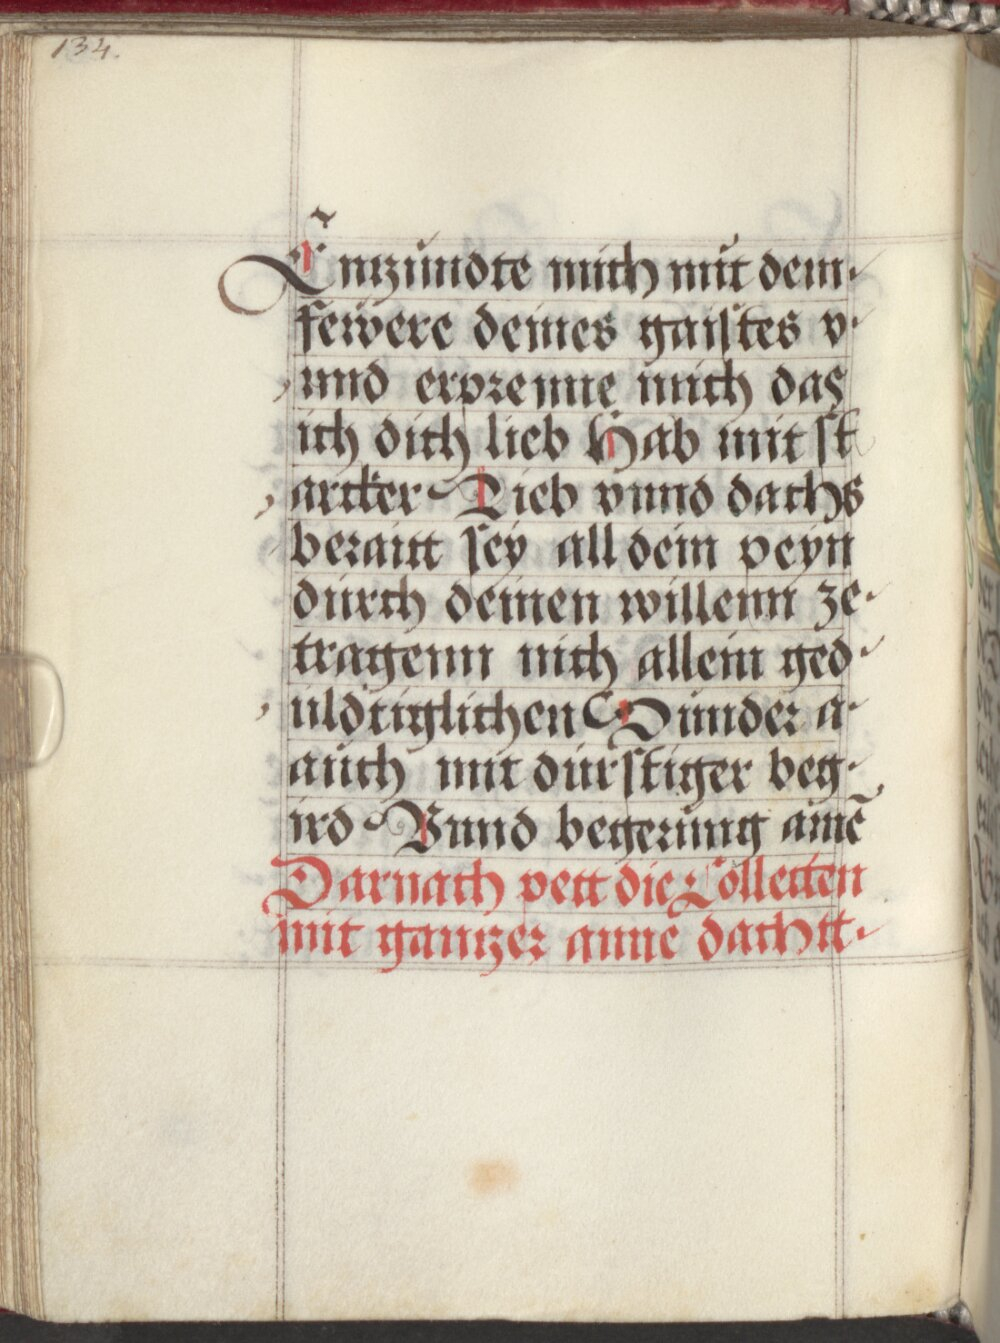 134.
Entzundte mich mit dem
fewere deines gaistes v
unnd erprenne mich das
ich dich lieb Hab mit st
arcker Lieb vnnd dachs
beraitt sey all dein peyn
durch deinen willenn ze
tragenn nich allein ged
uldtiglichen Sunder a
auch mit durstiger beg
ird Vnnd begerung amē
Darnach pett die Collecten
mit gantzer anne dachtt